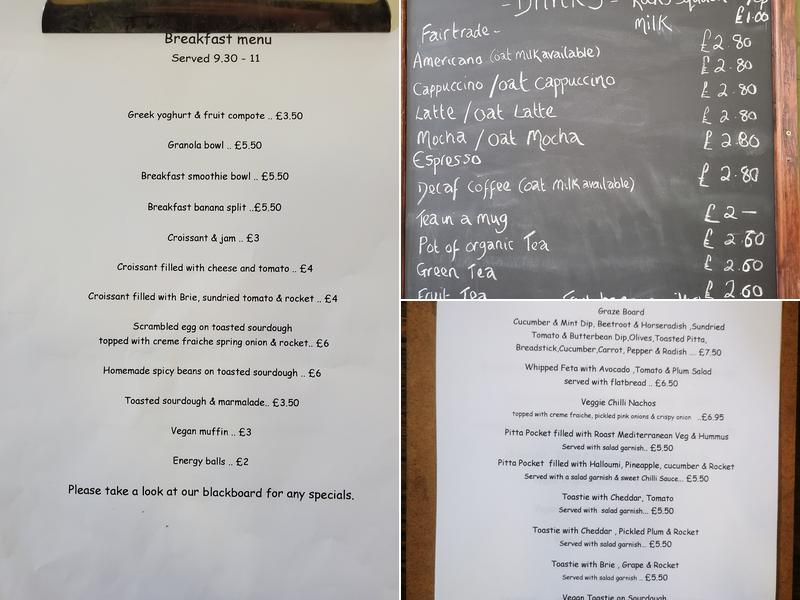 Breakfast menu
Served 9.30 - 11
Greek yoghurt & fruit compote .. £3.50
Granola bowl .. £5.50
Breakfast smoothie bowl .. £5.50
Breakfast banana split ..£5.50
Croissant & jam .. £3
Croissant filled with cheese and tomato .. £4
Croissant filled with Brie, sundried tomato & rocket .. £4
Scrambled egg on toasted sourdough
topped with creme fraiche spring onion & rocket.. £6
Homemade spicy beans on toasted sourdough .. £6
Toasted sourdough & marmalade.. £3.50
Vegan muffin .. £3
Energy balls .. £2
Please take a look at our blackboard for any specials.
- DRINKS -
milk £1.00
Fairtrade -
Americano (oat milk available) £2.80
Cappuccino /oat cappuccino £2.80
Latte /oat Latte £2.80
Mocha /oat Mocha £2.80
Espresso £2.80
Decaf coffee (oat milk available) £2.80
Tea in a mug £2-
Pot of organic Tea £2.60
Green Tea £2.60
Fruit Tea £2.60
Graze Board
Cucumber & Mint Dip, Beetroot & Horseradish ,Sundried
Tomato & Butterbean Dip,Olives,Toasted Pitta,
Breadstick,Cucumber,Carrot, Pepper & Radish .... £7.50
Whipped Feta with Avocado ,Tomato & Plum Salad
served with flatbread .. £6.50
Veggie Chilli Nachos
topped with creme fraiche, pickled pink onions & crispy onion ..£6.95
Pitta Pocket filled with Roast Mediterranean Veg & Hummus
Served with salad garnish.. £5.50
Pitta Pocket filled with Halloumi, Pineapple, cucumber & Rocket
Served with a salad garnish & sweet Chilli Sauce... £5.50
Toastie with Cheddar, Tomato
Served with salad garnish... £5.50
Toastie with Cheddar , Pickled Plum & Rocket
Served with salad garnish... £5.50
Toastie with Brie , Grape & Rocket
Served with salad garnish .. £5.50
Vegan Toastie on Sourdough